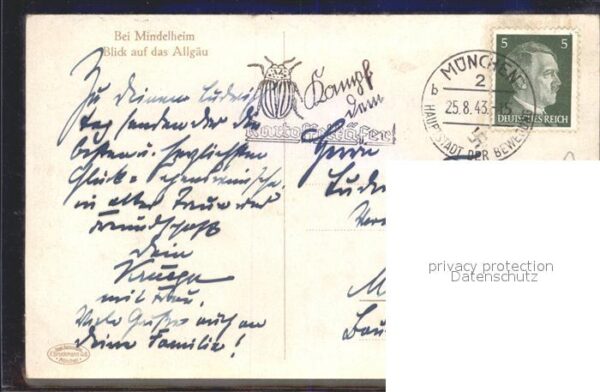 Bei Mindelheim
Blick auf das Allgäu
Zu Deinem Ludwigs
tag senden der Die
besten u. herzlichsten
Glück-
in alter Treue und
Freundschaft
Dein
Krueger
mit Frau.
Viele Grüße auch an
Deine Familie!
Kampf
dem
Kartoffelkäfer!
MÜNCHEN
2
b
25.8.43.-15
HAUPTSTADT DER BEWEGUNG
5 5
DEUTSCHES REICH
Herrn
privacy protection
Datenschutz